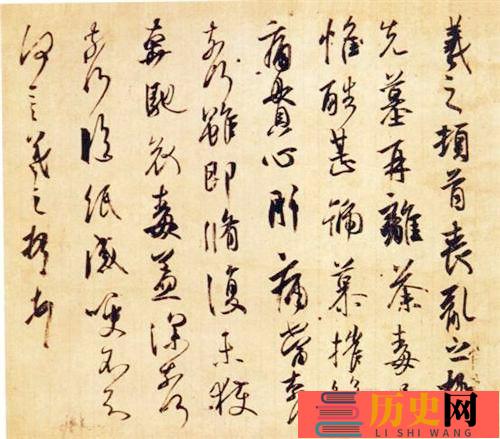 羲之頓首喪亂之極
先墓再離荼毒
惟酷甚號慕摧
痛貫心肝痛當奈
奈何雖即脩復未獲
奔馳哀毒益深奈何
奈何臨紙感哽不知
何言羲之頓首
历史网
LI SHI WANG